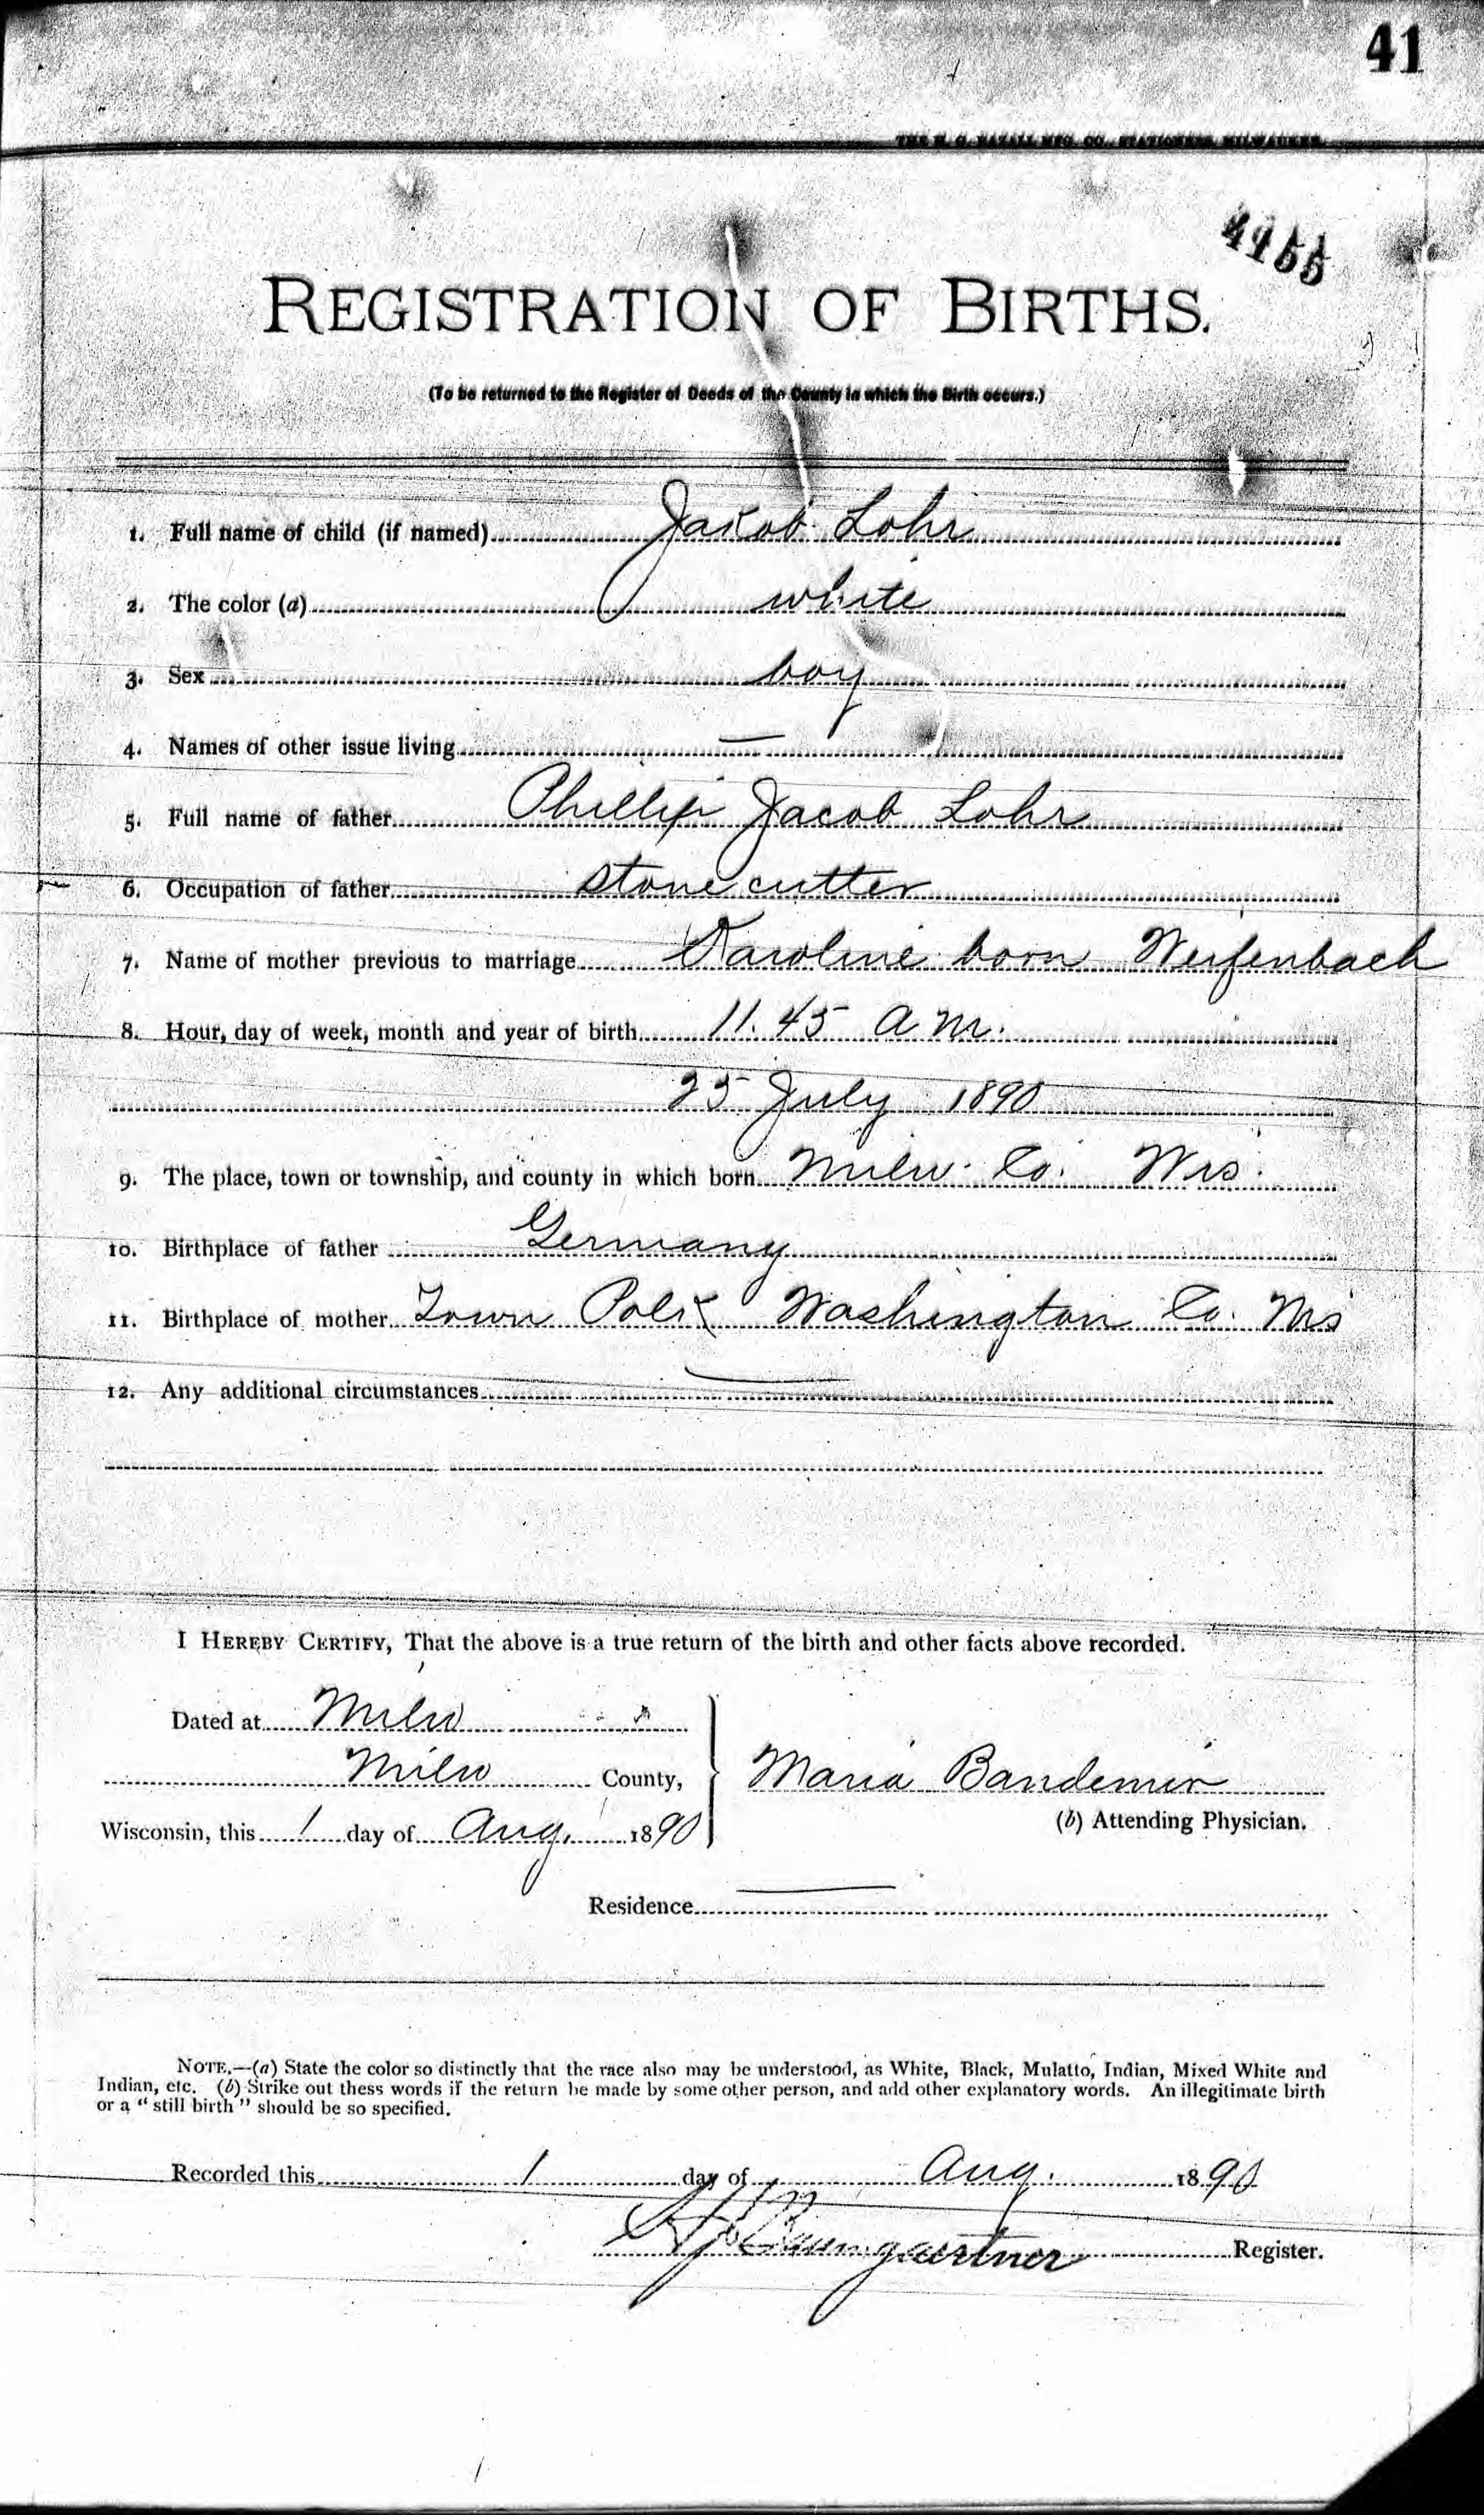 41
THE H. G. RAZALL MFG. CO., STATIONERS, MILWAUKEE.
4155
REGISTRATION OF BIRTHS.
(To be returned to the Register of Deeds of the County in which the Birth occurs.)
1. Full name of child (if named) Jakob Lohr
2. The color (a) white
3. Sex boy
4. Names of other issue living —
5. Full name of father Phillip Jacob Lohr
6. Occupation of father stone cutter
7. Name of mother previous to marriage Karoline born Weifenbach
8. Hour, day of week, month and year of birth 11.45 a.m.
25 July 1890
9. The place, town or township, and county in which born Milw. Co. Wis.
10. Birthplace of father Germany
11. Birthplace of mother Town Polk Washington Co. Wis
12. Any additional circumstances —
I HEREBY CERTIFY, That the above is a true return of the birth and other facts above recorded.
Dated at Milw
Milw County,
Maria Bandemir
(b) Attending Physician.
Wisconsin, this 1 day of Aug. 1890
Residence —
NOTE.—(a) State the color so distinctly that the race also may be understood, as White, Black, Mulatto, Indian, Mixed White and
Indian, etc. (b) Strike out thess words if the return be made by some other person, and add other explanatory words. An illegitimate birth
or a "still birth" should be so specified.
Recorded this 1 day of Aug. 1890
Baumgaertner Register.